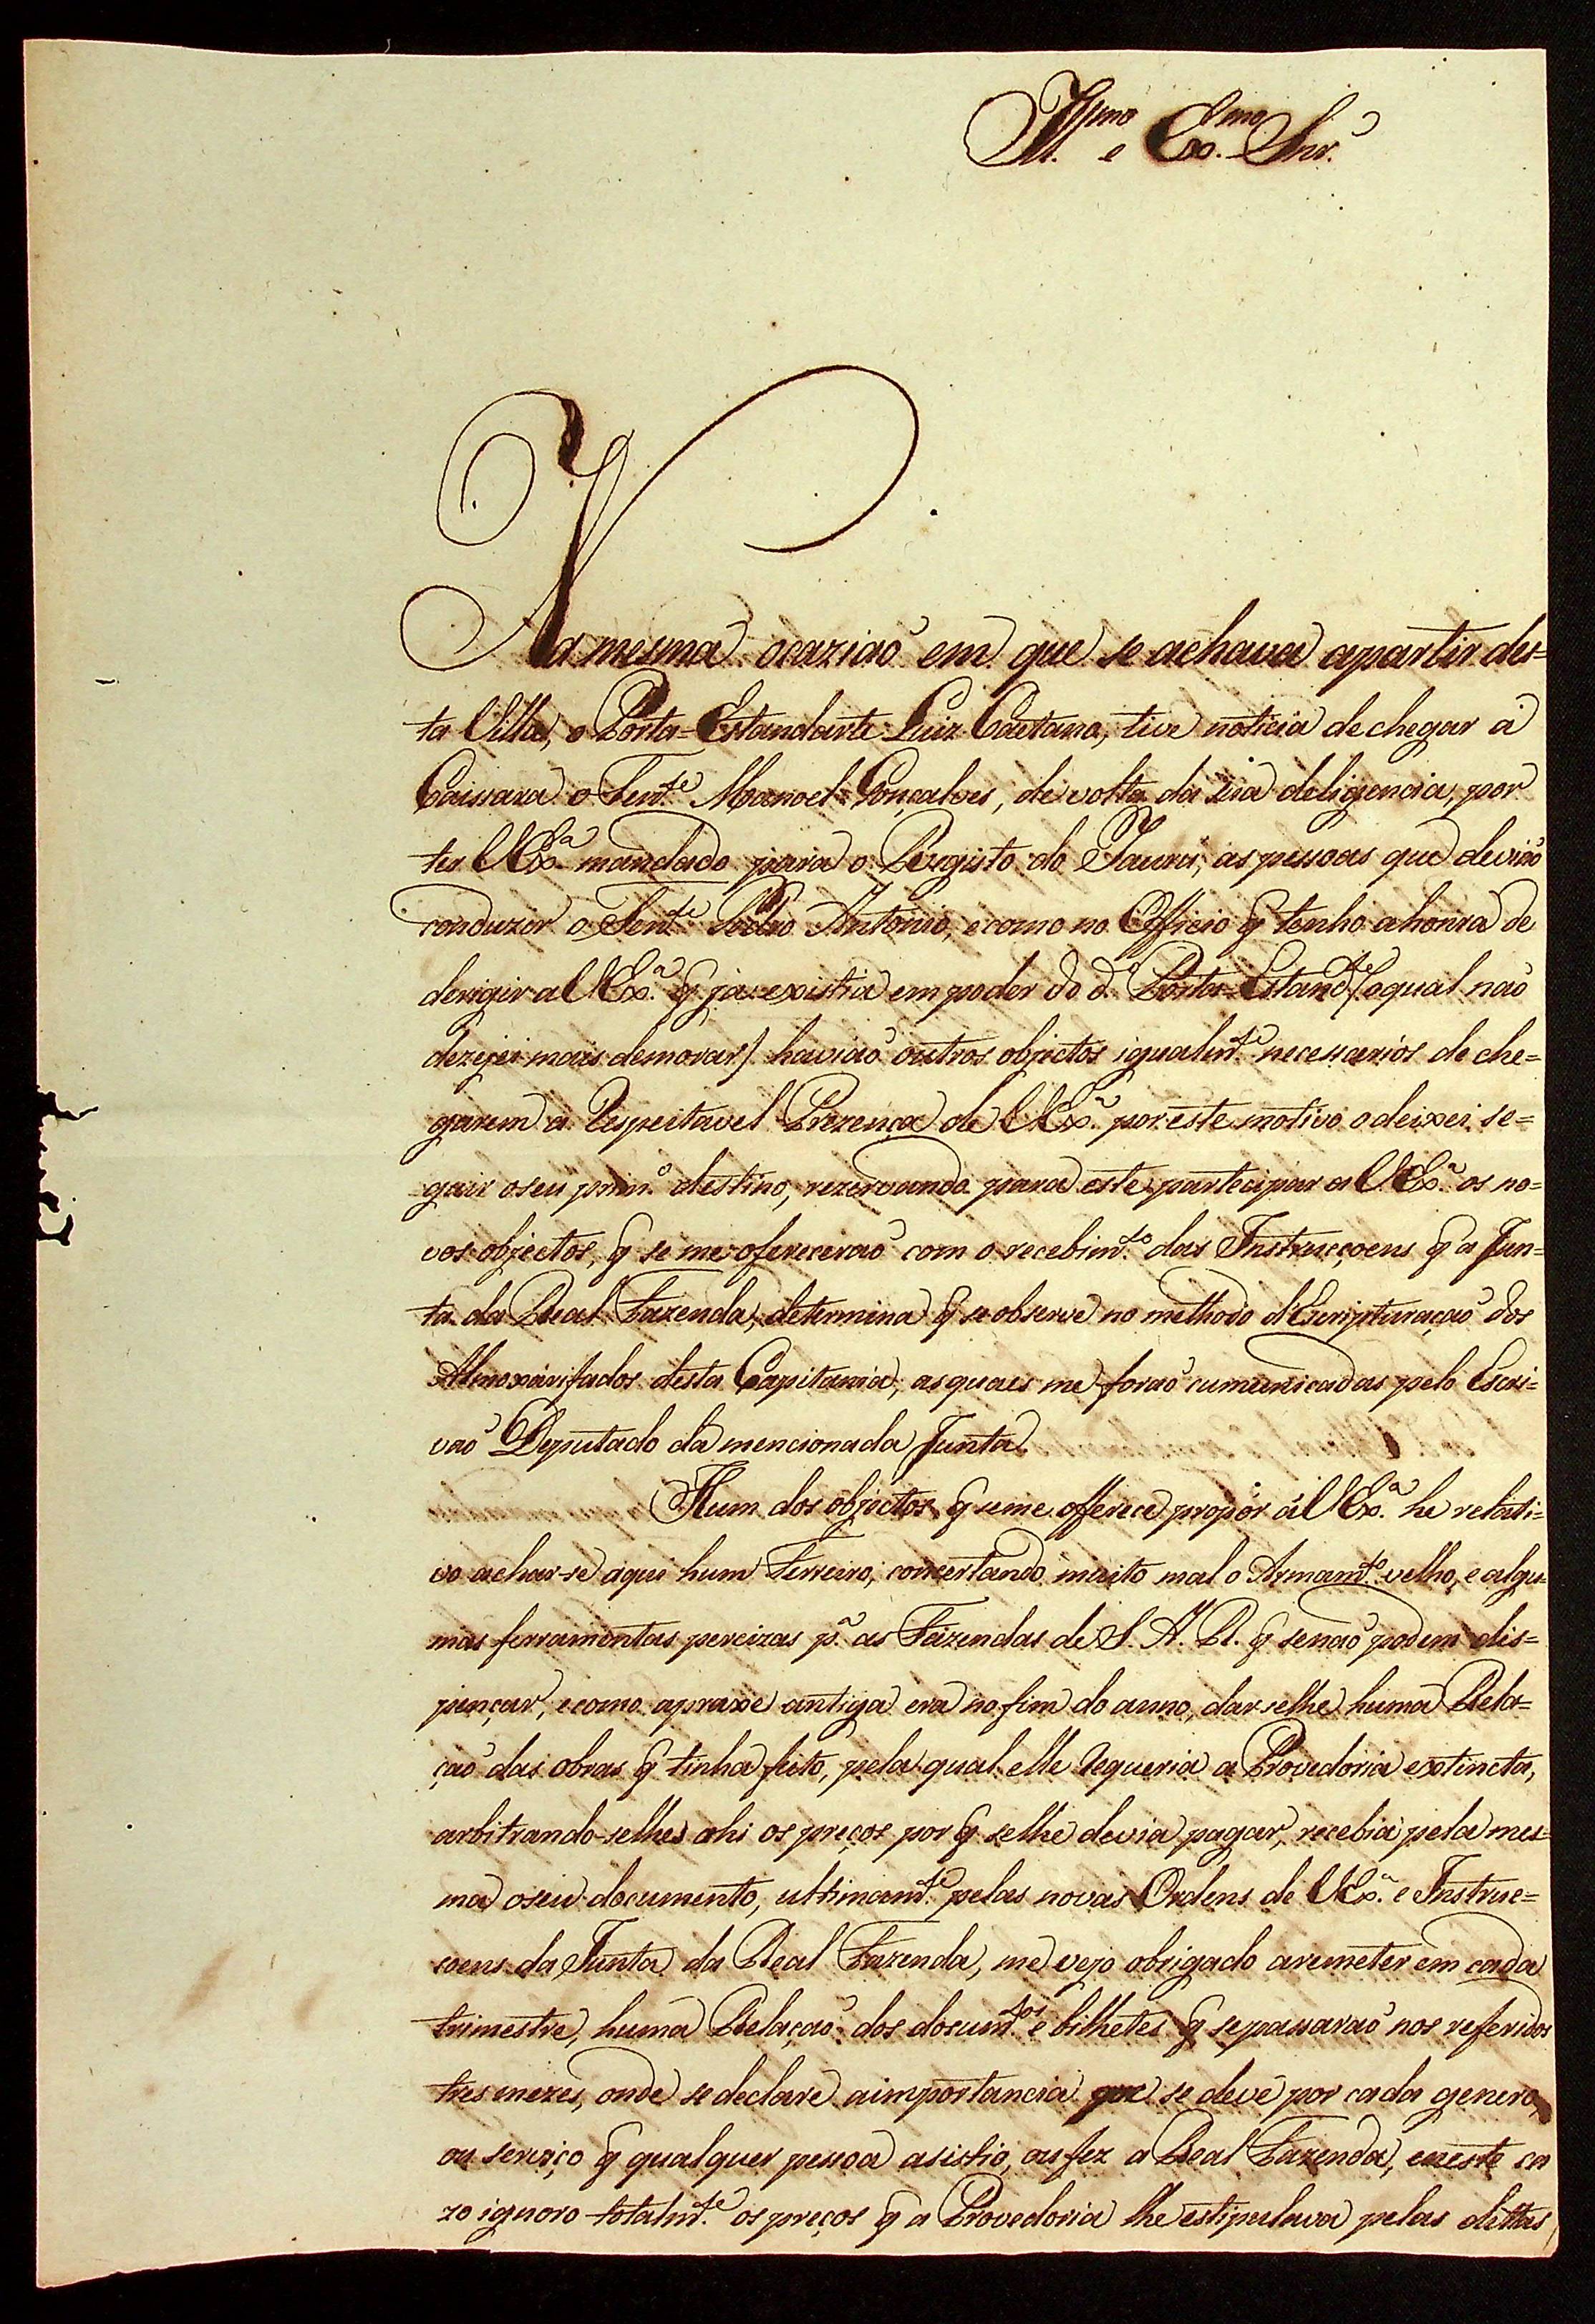 Ill.mo e Ex.mo Snr.
Na mesma ocazião em que se achava apartir des=
ta Villa, o Porta=Estandarte Luiz Caetano, tive noticia de chegar á
Caissara o Ten.te Manoel Gonçalves, de volta da sua deligencia, por
ter VEx.a mandado para o Rezgisto do Jauru, as pessoas que devião
conduzir o Ten.te Pedro Antonio, e como no Officio q̃ tenho a honra de
derigir a VEx.a q̃ já existia em poder do d.o Porta=Estand.te (o qual não
dezejei mais demorar) havião outros objectos igualm.te necessarios de che=
garem a Respeitavel Prezença de VEx.a por este motivo o deixei se=
guir o seu prim.o destino, rezervando para este partecipar a VEx.a os no=
vos objectos, q̃ se me oferecerão com o recebim.to das Instrucçoens q̃ a Jun=
ta da Real Fazenda, determina q̃ se observe no methodo d'Escripturação dos
Almoxarifados desta Capitania, as quaes me forão cumunicadas pelo Escri=
vão Deputado da mencionada Junta.
Hum dos objectos q̃ se me offerece propôr á VEx.a he relati=
vo achar-se aqui hum Ferreiro, concertando muito mal o Armam.to velho, e algu=
mas ferramentas percizas p.a as Fazendas de S. A. R. q̃ senão podem dis=
pençar, e como apraxe antiga era no fim do anno, darselhe huma Rela=
ção das obras q̃ tinha feito, pela qual elle requeria a Provedoria extincta,
arbitrando-selhes ahi os preços por q̃ selhe devia pagar, recebia pela mes=
ma o seu documento, ultimam.te pelas novas Ordens de VEx.a e Instruc=
coens da Junta da Real Fazenda, me vejo obrigado aremeter em cada
trimestre, huma Relação dos docum.tos e bilhetes q̃ sepassarão nos referidos
tres mezes, onde se declare aimportancia que se deve por cada genero,
ou serviço q̃ qualquer pessoa asistio, ou fez a Real Fazenda, eneste ca
zo ignoro totalm.te os preços q̃ a Provedoria lhe estipulava pelas dittas